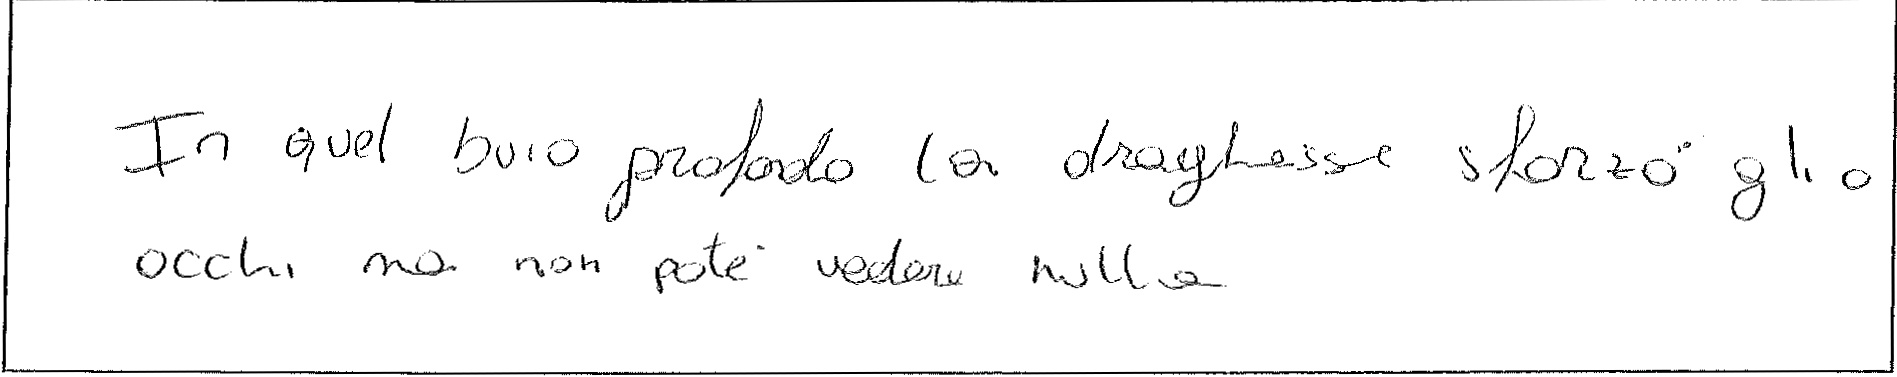 In quel buio profondo la draghessa sforzò gli o
occhi ma non poté vedere nulla